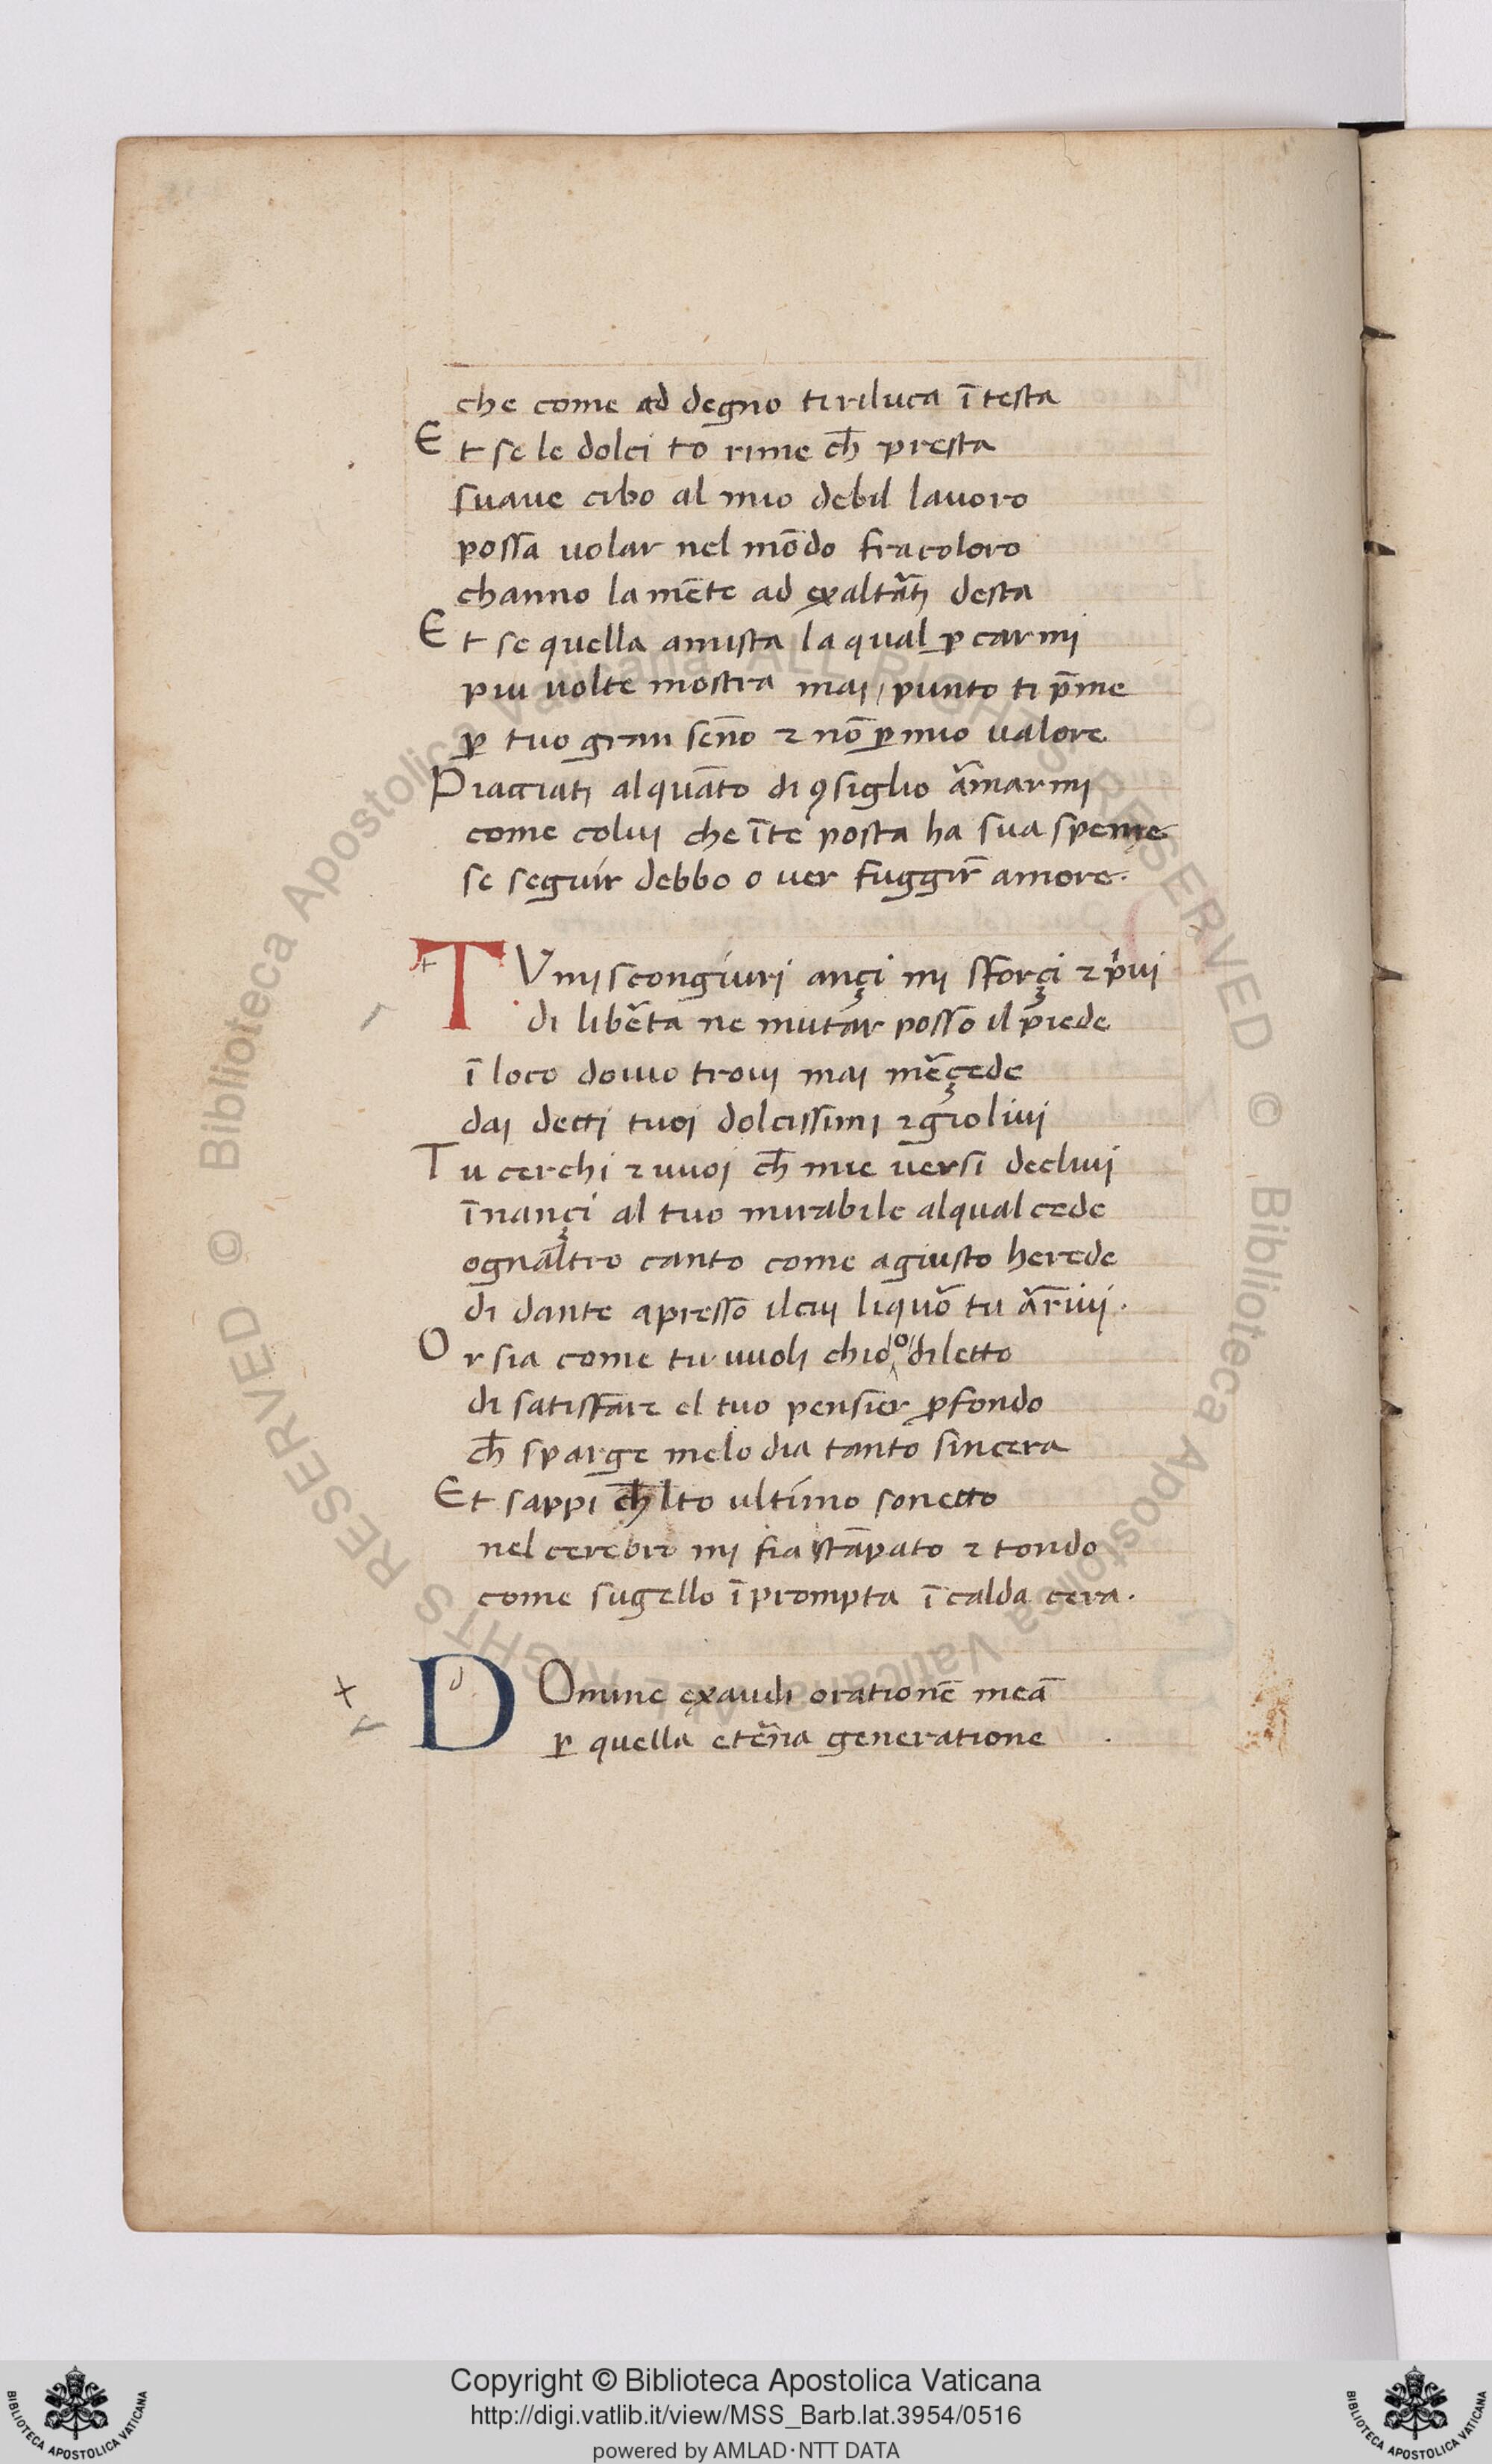 che come ad degno ti riluca ī testa
Et se le dolci to rime ch̄ presta
suaue cibo al mio debil lauoro
possa uolar nel mōdo fracoloro
channo la mēte ad exaltāti desta
Et se quella amista la qual ꝑ carmi
piu uolte mostra mai punto ti p̄me
ꝑ tuo gran seño ⁊ nō ꝑ mio ualore
Piacciati alquāto di ꝯsiglio āmarmi
come colui che ī te posta ha sua speme
se seguir debbo o uer fuggir̄ amore.
TU mi scongiuri ançi mi sforçi ⁊ p̄ui
di libẽta ne mutar posso il piede
ī loco douio troui mai mẽçede
dai detti tuoi dolcissimi ⁊ giolivi
Tu cerchi ⁊ uuoi ch̄ mie uersi decliui
īnançi al tuo mirabile alqual cede
ognaltro canto come agiusto herede
di dante apresso il cui liquõ tu ār̄iui.
Or sia come tu uuoli chio o diletto
di satisfare el tuo pensier ꝓfondo
ch̄ sparge melodia tanto sincera
Et sappi ch̄ lto ultimo sonetto
nel cerebro mi fia stāpato ⁊ tondo
come sugello ī prompta ī calda cera.
DOmine exaudi orationē meā
ꝑ quella etẽna generatione
Copyright © Biblioteca Apostolica Vaticana
http://digi.vatlib.it/view/MSS_Barb.lat.3954/0516
powered by AMLAD·NTT DATA